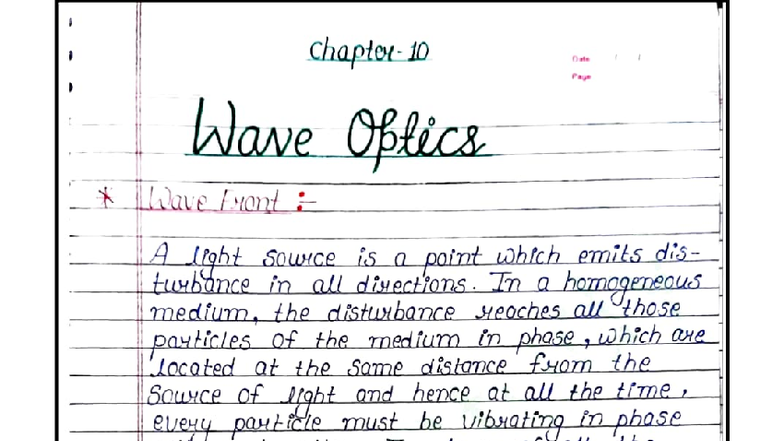 Chapter-10
Date
Page
Wave Optics
* Wave Front :-
A light source is a point which emits dis-
turbance in all directions. In a homogeneous
medium, the disturbance reaches all those
particles of the medium in phase, which are
located at the same distance from the
source of light and hence at all the time,
every particle must be vibrating in phase